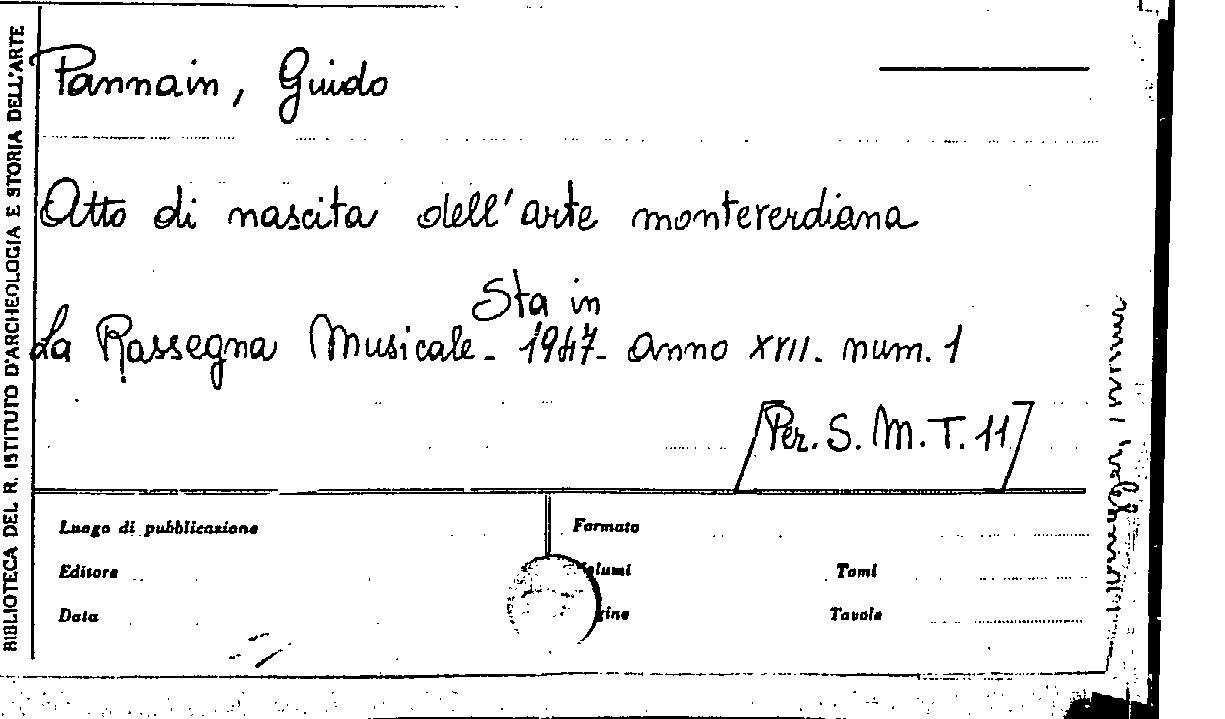 BIBLIOTECA DEL R. ISTITUTO D'ARCHEOLOGIA E STORIA DELL'ARTE
Pannain, Guido
Atto di nascita dell'arte monteverdiana
Sta in
La Rassegna Musicale - 1947 - anno XVII. num. 1
Per. S. M. T. 11
Luogo di pubblicazione
Formato
Editore
Tomi
Data
Tavole